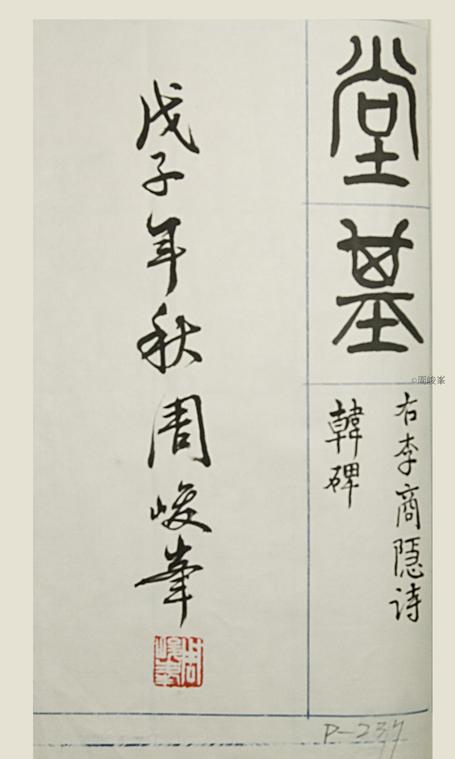 堂基
右李商隐诗
韓碑
戊子年秋周峻峯
周峻峯
©周峻峯
P-237